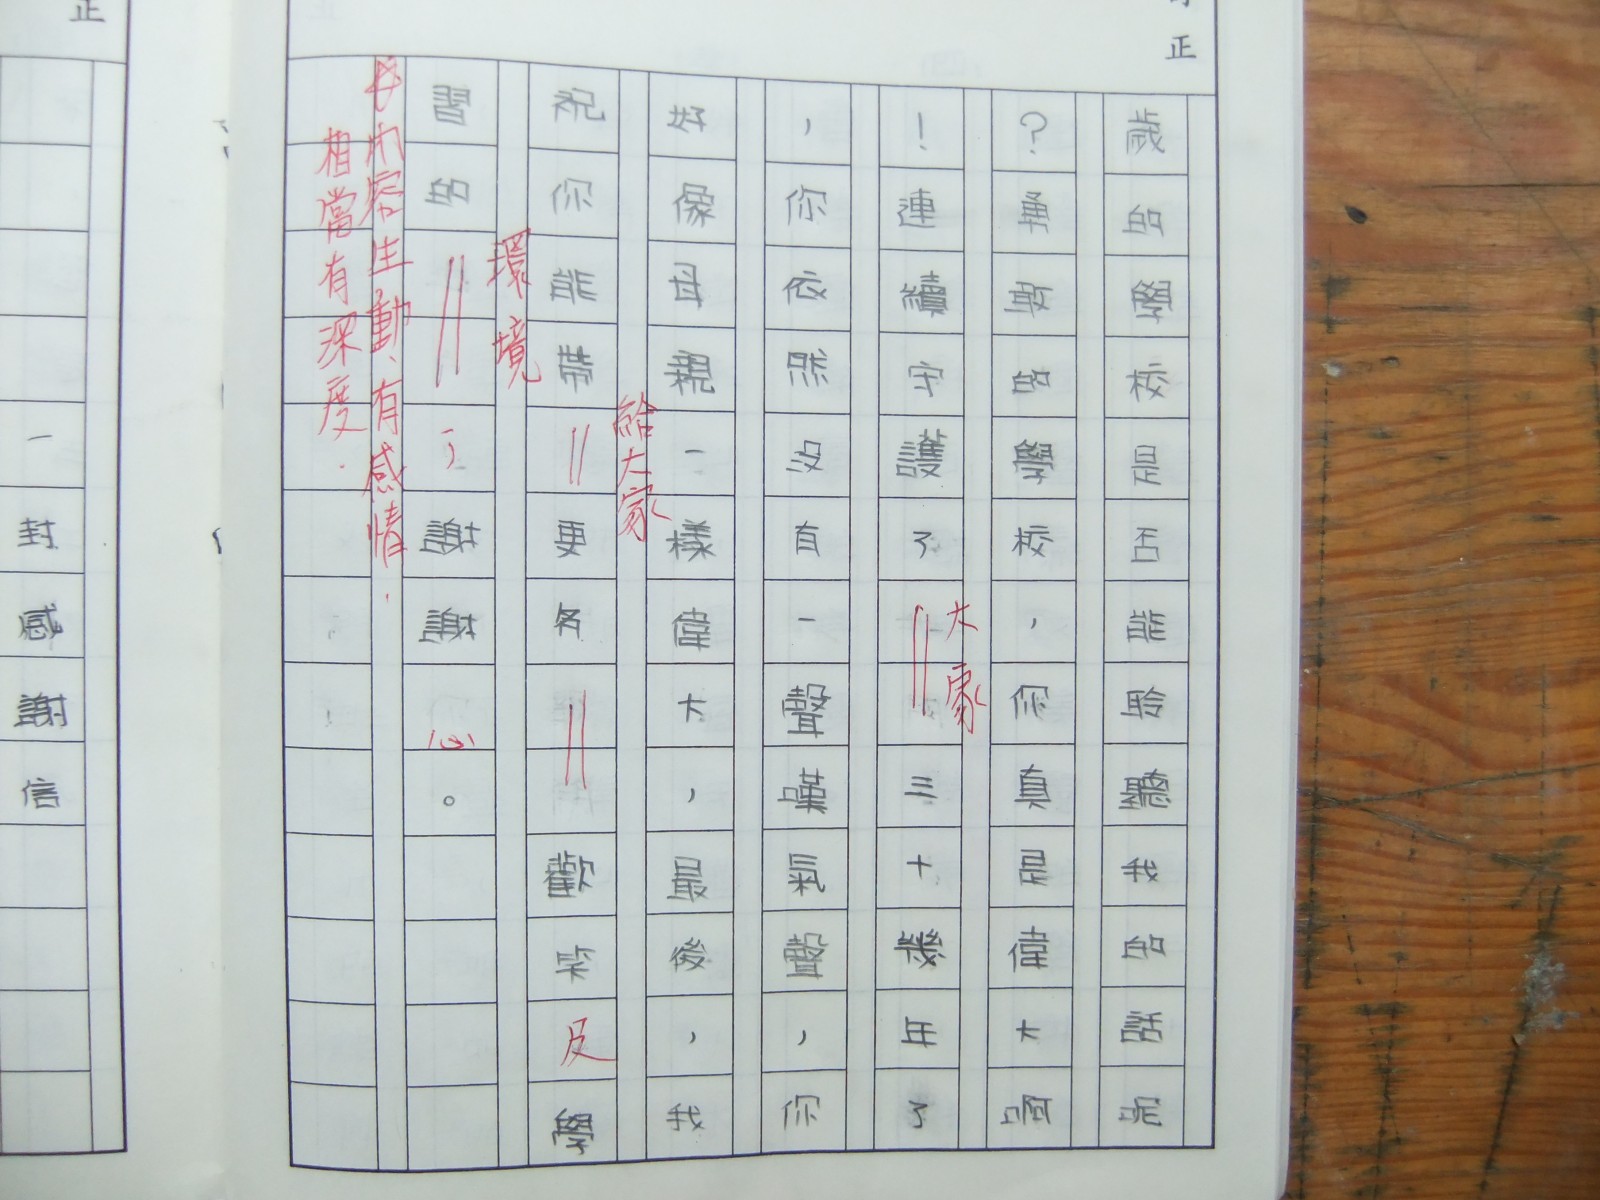 正
歲的學校是否能聆聽我的話呢
？勇敢的學校，你真是偉大啊
！連續守護了大家三十幾年了
，你依然沒有一聲嘆氣聲，你
好像母親一樣偉大，最後，我
祝你能帶給大家更多歡笑及學
習的環境，謝謝您。
內容生動、有感情.
相當有深度.
正
一封感謝信